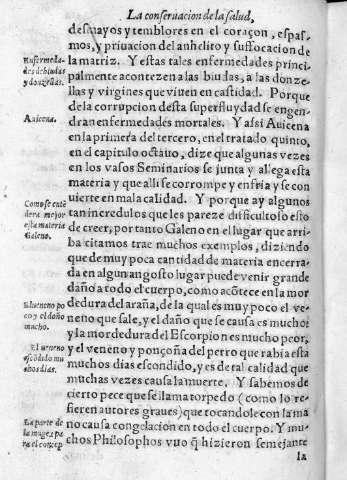 La conseruacion de la salud,
desmayos y temblores en el coraçon, espas-
mos, y priuacion del anhelito y suffocacion de
la matriz. Y estas tales enfermedades princi-
palmente acontezen a las biudas, a las donze
llas y virgines que viuen en castidad. Porque
de la corrupcion desta superfluydad se engen-
dran enfermedades mortales. Y assi Auicena
en la primera del tercero, en el tratado quinto,
en el capitulo octauo, dize que algunas vezes
en los vasos Seminarios se junta y allega esta
materia y que alli se corrompe y enfria y se con
uierte en mala calidad. Y porque ay algunos
tan incredulos que les pareze difficultoso esto
de creer, por tanto Galeno en el lugar que arri
ba citamos trae muchos exemplos, diziendo
que de muy poca cantidad de materia encerra-
da en algun angosto lugar puede venir grande
daño a todo el cuerpo, como acõtece en la mor
dedura del araña, de la qual es muy poco el ve-
neno que sale, y el daño que se causa es mucho:
y la mordedura del Escorpion es mucho peor,
y el veneno y ponçoña del perro que rabia esta
muchos dias escondido, y es de tal calidad que
muchas vezes causa la muerte. Y sabemos de
cierto pece que se llama torpedo (como lo re-
fieren autores graues) que tocandole con la ma
no causa congelacion en todo el cuerpo. Y mu
chos Philosophos vuo q̃ hizieron semejante
la
Enfermeda-
des de biudas
y donzellas.
Auicena.
Como se entẽ
dera mejor
esta materia
Galeno.
El veneno po
co y el daño
mucho.
El veneno
escõdido mu
chos dias.
La parte de
la muger pa
ra el concep